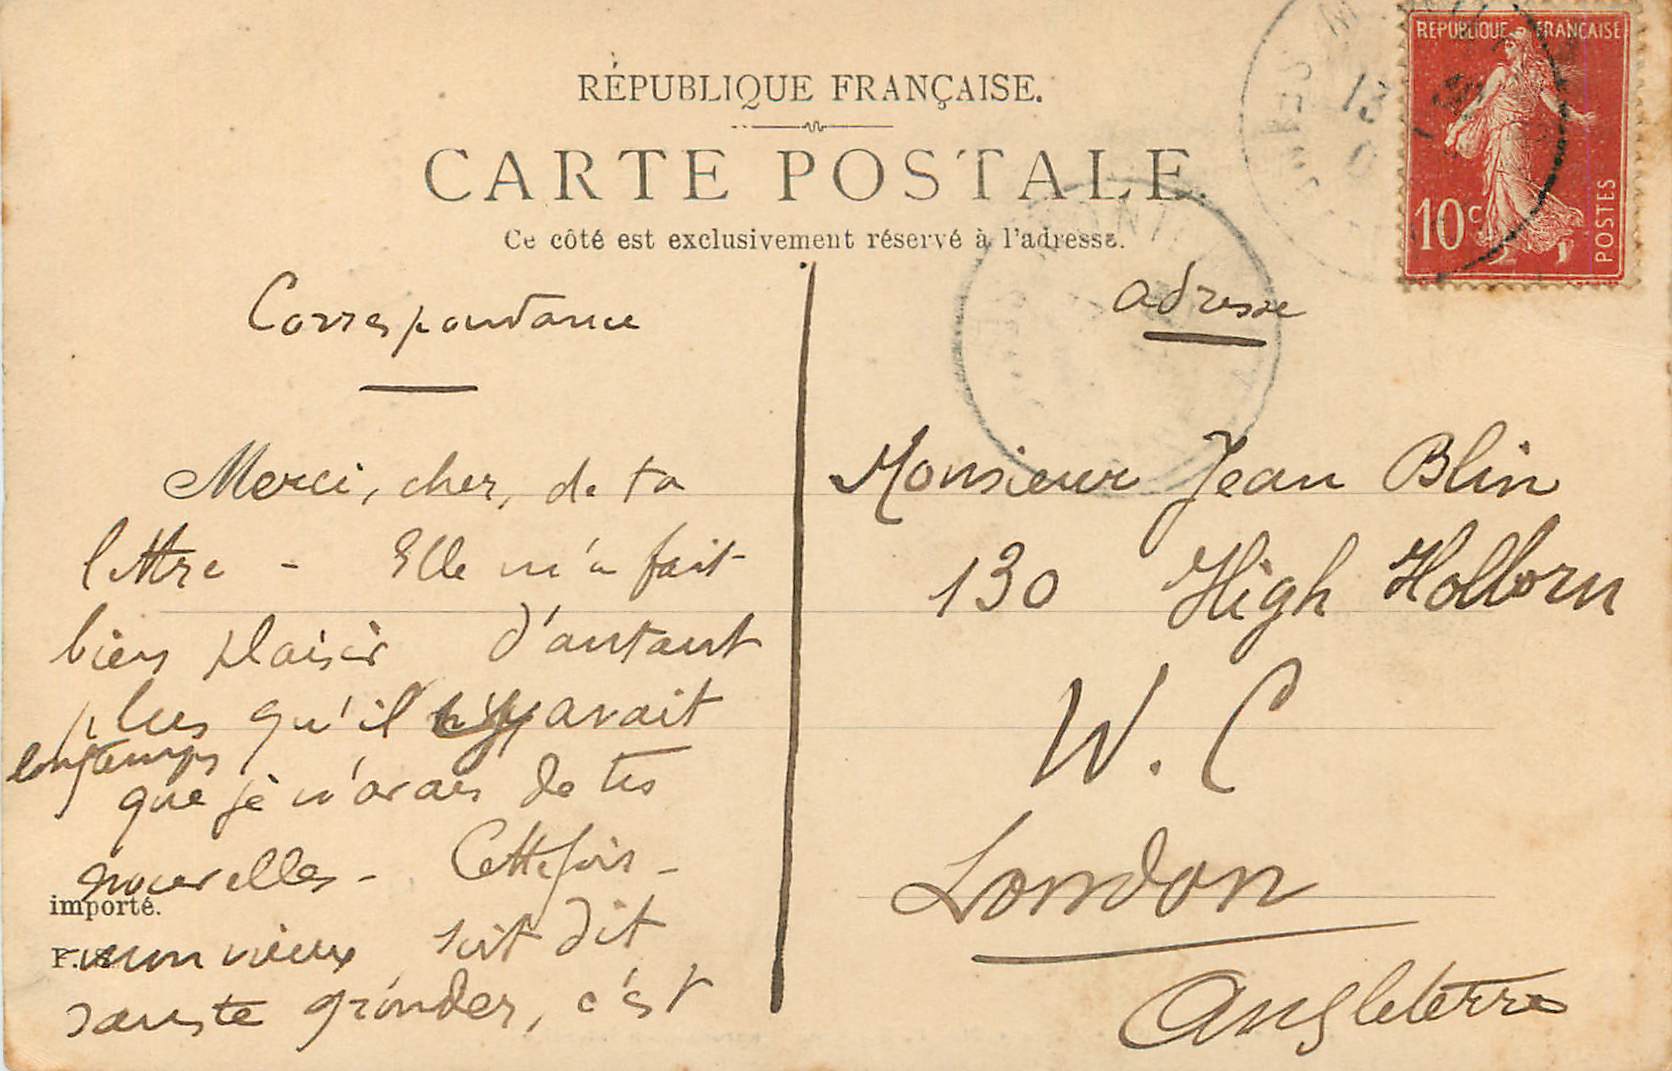 RÉPUBLIQUE FRANÇAISE.
CARTE POSTALE.
Ce côté est exclusivement réservé à l'adresse.
REPUBLIQUE FRANÇAISE
10c
POSTES
13
Correspondance
Merci, cher, de ta
lettre - Elle m'a fait
bien plaisir d'autant
plus qu'il y avait
longtemps
que je n'avais de tes
nouvelles - Cette fois -
mon vieux soit dit
sans te gronder, c'est
importé.
adresse
Monsieur Jean Blin
130 High Holborn
W. C
London
Angleterre